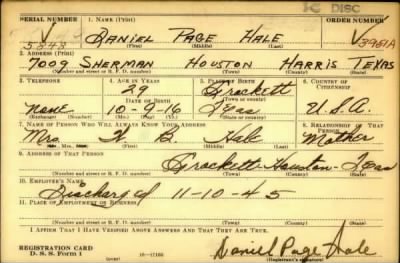 DISC
SERIAL NUMBER 1. NAME (Print) ORDER NUMBER
5843 DANIEL PAGE HALE 3981A
(First) (Middle) (Last)
2. ADDRESS (Print)
7009 SHERMAN HOUSTON HARRIS TEXAS
(Number and street or R. F. D. number) (Town) (County) (State)
3. TELEPHONE 4. AGE IN YEARS 5. PLACE OF BIRTH 6. COUNTRY OF CITIZENSHIP
29 Crockett
DATE OF BIRTH (Town or county)
none 10-9-16 Texas U.S.A.
(Exchange) (Number) (Mo.) (Day) (Yr.) (State or country)
7. NAME OF PERSON WHO WILL ALWAYS KNOW YOUR ADDRESS 8. RELATIONSHIP OF THAT PERSON
Mrs Hale Mother
(Mr., Mrs., Miss) (First) (Middle) (Last)
9. ADDRESS OF THAT PERSON
Crockett-Houston-Texas
(Number and street or R. F. D. number) (Town) (County) (State)
10. EMPLOYER'S NAME
Discharged 11-10-45
11. PLACE OF EMPLOYMENT OR BUSINESS
(Number and street or R. F. D. number) (Town) (County) (State)
I AFFIRM THAT I HAVE VERIFIED ABOVE ANSWERS AND THAT THEY ARE TRUE.
REGISTRATION CARD
D. S. S. FORM 1
Daniel Page Hale
(Registrant's signature)